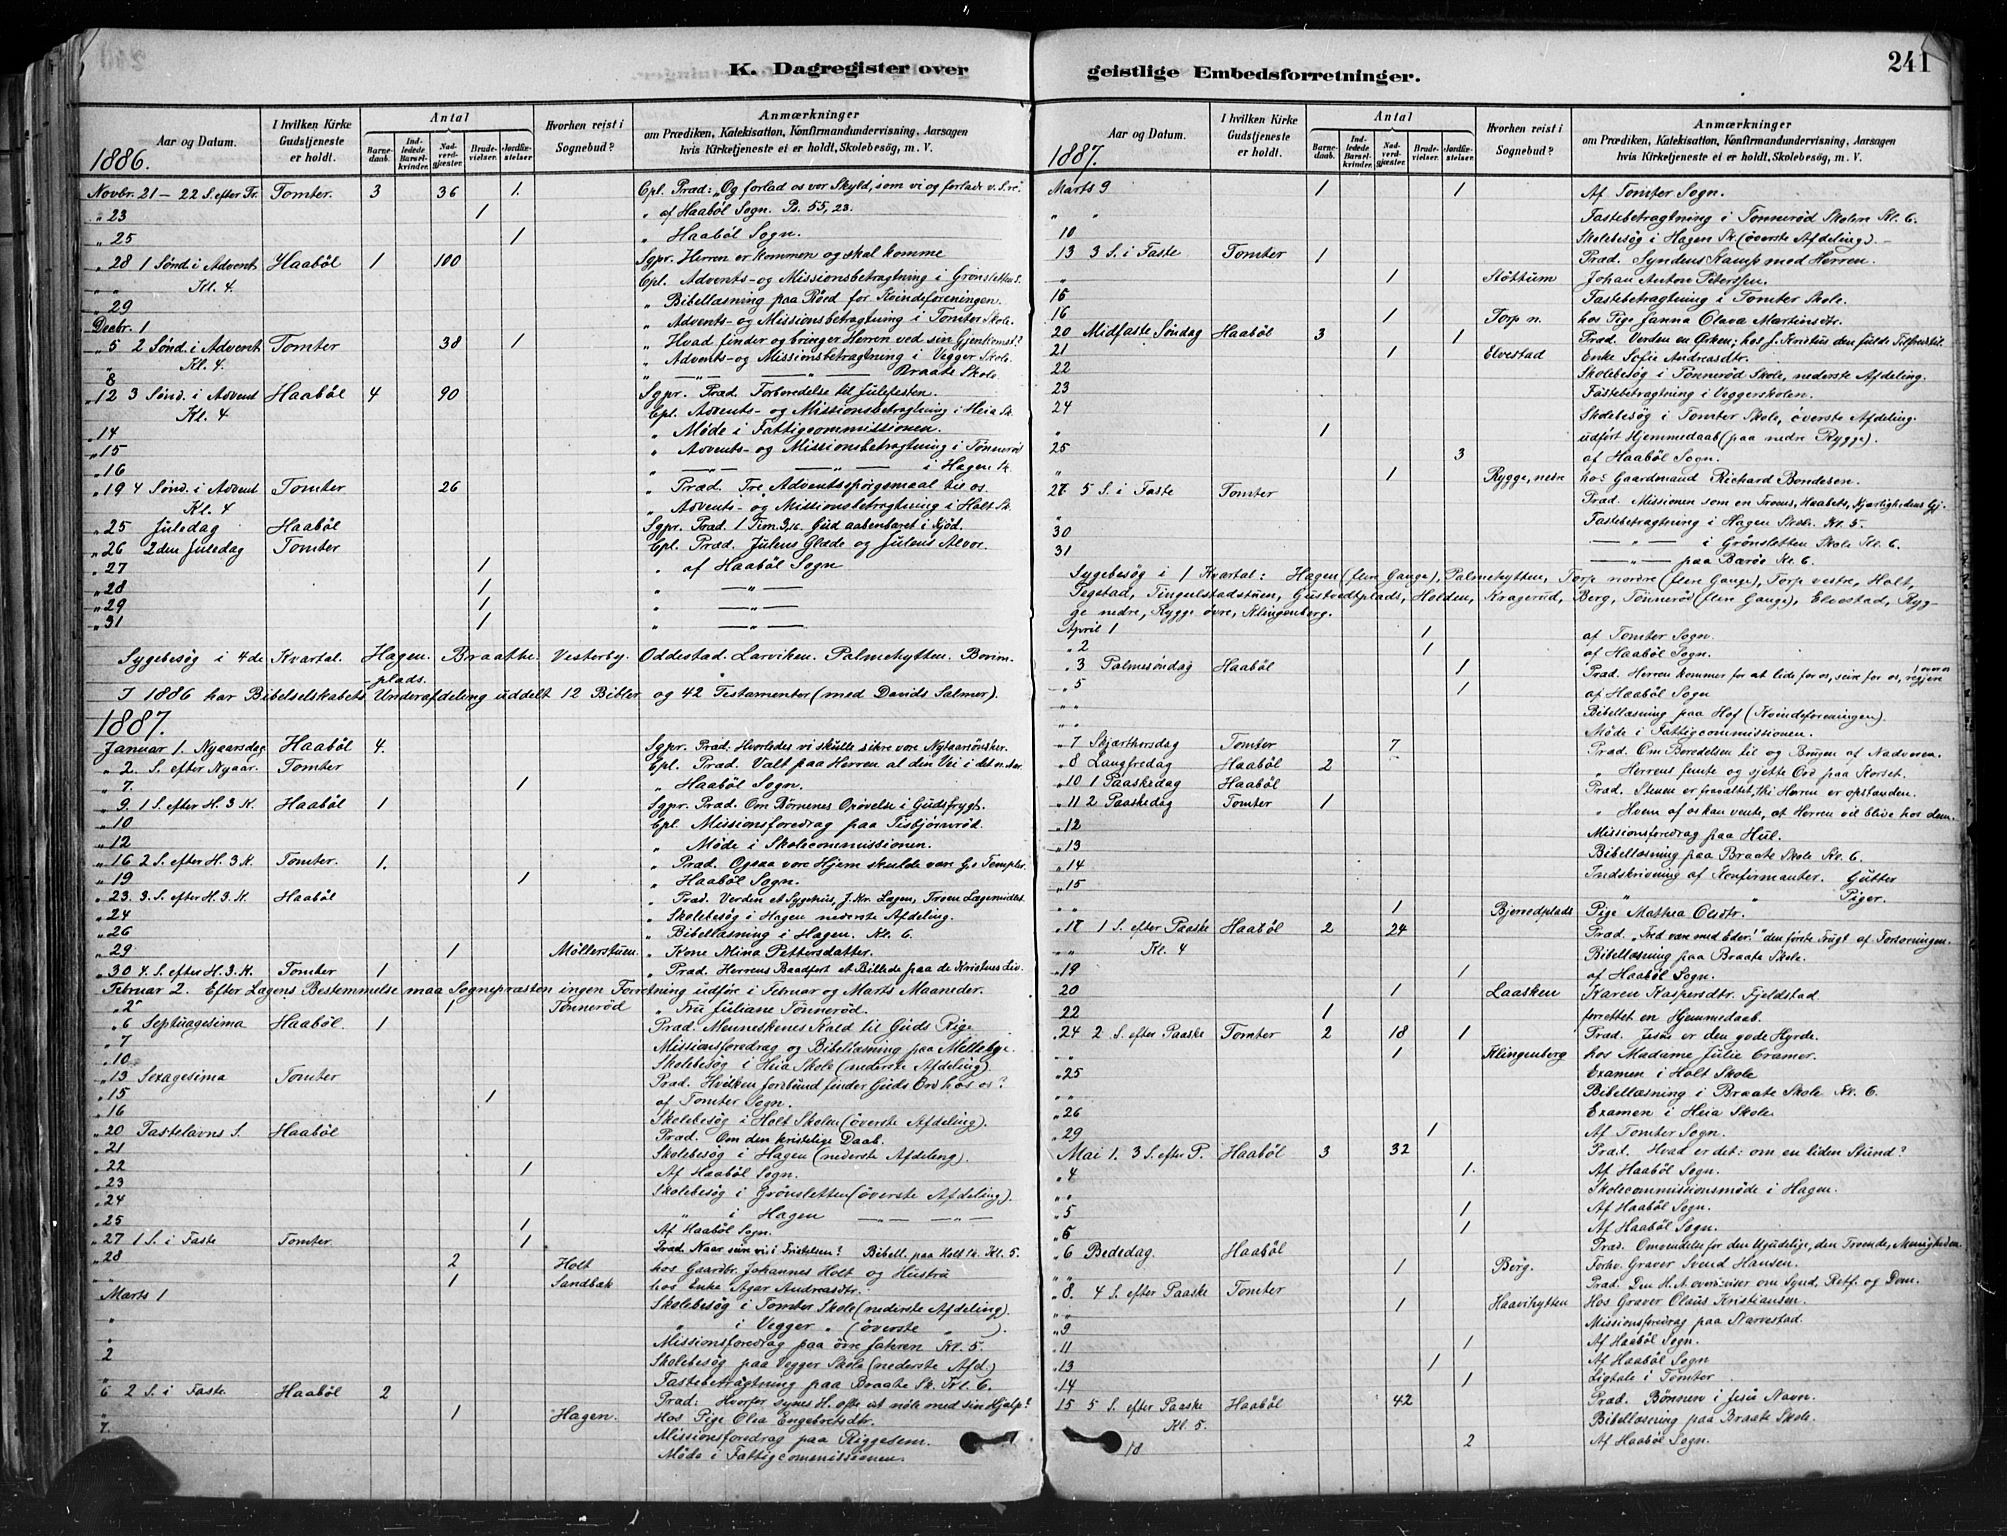 K. Dagregister over
geistlige Embedsforretninger.
241
Aar og Datum.
I hvilken Kirke Gudstjeneste er holdt.
Antal
Barne-daab.
Ind-ledede Barsel-kvinder.
Nad-verd-gjæster.
Brude-vielser.
Jordfæ-stelser.
Hvorhen reist i Sognebud?
Anmærkninger
om Prædiken, Katekisation, Konfirmandundervisning, Aarsagen
hvis Kirketjeneste et er holdt, Skolebesög, m. V.
1886.
Novbr. 21 – 22 S. efter Tr. Tomter. 3 36 1. Cpl. Præd: „Og forlad os vor Skyld, som vi og forlade v. S.
„ 23 1 „ af Haaböl Sogn. Ps. 55, 23.
„ 25 1 „ Haaböl Sogn.
„ 28 1 Sønd i Advent Haaböl 1 100 Sgpr. Herren er kommen og skal komme
„ „ Kl. 4. Cpl. Advents- og Missionsbetragtning i Grønsletten S.
„ 29 „ Bibellæsning paa Röed for Kvindeforeningen.
Decbr. 1 „ Advents- og Missionsbetragtning i Tomter Skole.
„ 5 2 Sönd. i Advent Tomter 38 1 „ Hvad finder og bringer Herren ved sin Gjenkomst?
„ Kl. 4. „ Advents- og Missionsbetragtning i Vegger Skole.
8 „ — „ — — „ — Braate Skole
„ 12 3 Sönd. i Advent Haaböl 4 90 Sgpr. Præd. Forberedelse til Julefesten.
Kl. 4 Cpl. Advents- og Missionsbetragtning i Heia Sk.
„ 14 „ Møde i Fattigcommissionen.
„ 15 „ Advents- og Missionsbetragtning i Tönneröd
„ 16 „ — „ — — „ — i Hagen Sk.
„ 19 4 Sönd. i Advent Tomter 26 „ Præd. Tre Adventsspörgsmaal til os.
Kl. 4 „ Advents- og Missionsbetragtning i Holt Sk.
„ 25 Juledag Haaböl Sgpr. Præd. 1 Tim. 3, 16. Gud aabenbaret i Kjöd.
„ 26 2den Juledag Tomter Cpl. Præd. Julens Glæde og Julens Alvor.
„ 27 1 „ af Haaböl Sogn
„ 28 1 „ — „ —
„ 29 1 „ — „ —
„ 31 1 „ — „ —
Sygebesög i 4de Kvartal. Hagen. Braathe. Vesterby. Oddestad. Larviken. Palmehytten. Borim-
plads.
I 1886 har Bibelselskabets Underafdeling uddelt 12 Bibler og 42 Testamenter (med Davids Salmer).
1887.
Januar 1. Nyaarsdag Haaböl 4. Sgpr. Præd. Hvorledes vi skulle sikre vore Nytaarsönsker.
„ 2. S. efter Nyaar. Tomter Cpl. Præd. Valt paa Herren al den Vei i det
„ 7. 1 „ Haaböl Sogn.
„ 9. 1 S. efter H. 3 K. Haaböl 1 Sgpr. Præd. Om Börnenes Opövelse i Gudsfrygt.
„ 10 Cpl. Missionsforedrag paa Tisbjörnröd.
„ 12 „ Møde i Skolecommissionen.
„ 16 2 S. efter H. 3 K. Tomter. 1. „ Præd. Ogsaa vore Hjem skulde være G. Templer
„ 19 1 „ Haaböl Sogn.
„ 23. 3. S. efter H. 3. K. Haaböl „ Præd. Verden et Sygehus, J. Kr. Lægen, Troen Lægemidlet
„ 24 „ Skolebesög i Hagen nederste Afdeling.
„ 26 „ Bibellæsning i Hagen. Kl. 6.
„ 29 1 Möllerstuen „ Kone Mina Pettersdatter.
„ 30 4. S. efter H. 3. K. Tomter 1 „ Præd. Herrens Baadfart et Billede paa de Kristnes Liv.
Februar 2. Efter Lægens Bestemmelse maa Sognepræsten ingen Forretning udføre i Februar og Marts Maaneder.
„ 2 1 Tönneröd „ Fru Juliane Tönneröd.
„ 6 Septuagesima Haaböl. 1 Præd. Menneskenes Kald til Guds Rige
„ 7 Missionsforedrag og Bibellæsning paa Mellebye.
„ 10 Skolebesög i Heia Skole (nederste Afdeling).
„ 13 Sexagesima Tomter Præd. Hvilken Jordbund finder Guds Ord hos os?
„ 15 1 af Tomter Sogn.
„ 16 Skolebesög i Holt Skolen (överste Afdeling).
„ 20 Fastelavns S. Haaböl Præd. Om den kristelige Daab.
„ 21 Skolebesög i Hagen (nederste Afdeling).
„ 22 1 Af Haaböl Sogn.
„ 23 Skolebesög i Grönsletten (överste Afdeling).
„ 24 „ i Hagen — „ — — „ —
„ 25 1 Af Haaböl Sogn.
„ 27 1 S. i Faste Tomter. 1 Præd. Naar seire vi i Fristelsen? Bibell. paa Holt Sk. Kl. 5.
„ 28 2 Holt hos Gaardbr. Johannes Holt og Hustru
„ 1 Sandbæk hos Enke Agar Andreasdtr.
Marts 1 Skolebesög i Tomter Skole (nederste Afdeling).
„ „ i Vegger „ (överste „ ).
„ Missionsforedrag paa övre Jahren Kl. 5.
2 Skolebesög paa Vegger Skole (nederste Afd.)
„ Fastebetragtning paa Braate Sk. Kl. 6.
6 2 S. i Faste Haaböl 2 Præd: Hvorfor synes H. ofte at nöle med sin Hjælp?
„ 1 Hagen. Hos Pige Olea Engebretsdtr.
7. Missionsforedrag paa Riggesem.
Møde i Fattigcommissionen.
Aar og Datum.
I hvilken Kirke Gudstjeneste er holdt.
Antal
Barne-daab.
Ind-ledede Barsel-kvinder.
Nad-verd-gjæster.
Brude-vielser.
Jordfæ-stelser.
Hvorhen reist i Sognebud?
Anmærkninger
om Prædiken, Katekisation, Konfirmandundervisning, Aarsagen
hvis Kirketjeneste et er holdt, Skolebesög, m. V.
1887.
Marts 9 1 1 Af Tomter Sogn.
„ „ Fastebetragtning i Tönneröd Skolen Kl. 6.
10 Skolebesög i Hagen Sk. (överste Afdeling).
13 3 S. i Faste Tomter 1 Præd. Syndens Kamp mod Herren.
„ 1 Støttum Johan Anton Peterssen.
15 Fastebetragtning i Tomter Skole.
16 1 Torp n. hos Pige Janna Olava Martinsdtr.
20 Midfaste Söndag Haaböl 3 1 Præd. Verden en Örken; hos J. Kristus den fulde Tilfredsstil.
21 1 Elvestad Enke Sofie Andreasdtr.
22 Skolebesög i Tönneröd Skole, nederste Afdeling.
23 Fastebetragtning i Veggerskolen.
24 Skolebesög i Tomter Skole, överste Afdeling.
„ 1 udført Hjemmedaab (paa nedre Rygge).
25 3 af Haaböl Sogn.
„ 1 Rygge, nedre hos Gaardmand Richard Bondesen.
27 5 S. i Faste Tomter Præd. Missionen som en Troens, Haabets, Kjærlighedens Gj.
„ Fastebetragtning i Hagen Skole Kl. 5.
30 — „ — i Grönsletten Skole Kl. 6.
31 — „ — paa Barøe Kl. 6.
Sygebesög i 1 Kvartal: Hagen (flere Gange), Palmehytten, Torp nordre (flere Gange), Torp vestre, Holt,
Tegstad, Tingulstadstuen, Gustvedtplads, Holden, Kragerud, Berg, Tönneröd (flere Gange), Elvestad, Ryg-
ge nedre, Rygge övre, Klingenberg.
April 1 1 af Tomter Sogn.
„ 2 1 af Haaböl Sogn.
„ 3 Palmesöndag Haaböl 1 Præd. Herren kommer for at lide for os, seire for os, regjere i over os
„ 5 1 af Haaböl Sogn
„ „ Bibellæsning paa Hof (Kvindeforeningen).
„ „ Møde i Fattigcommissionen.
„ 7 Skjærthorsdag Tomter 7 Præd. Om Beredelsen til og Brugen af Nadveren.
„ 8 Langfredag Haaböl 2 „ Herrens femte og sjette Ord paa Korset.
„ 10 1 Paaskedag Haaböl Præd. Stenen er fravæltet, thi Herren er opstanden.
„ 11 2 Paaskedag Tomter 1 „ Hvem af os kan vente, at Herren vil blive hos dem.
„ 12 Missionsforedrag paa Hul.
„ 13 Bibellæsning paa Braate Skole Kl. 6.
„ 14 Indskrivning af Konfirmanter. Gutter
„ 15 „ „ Piger.
„ „ 1 Bjerredplads Pige Mathea Olsdtr.
„ 17 1 S. efter Paaske Haaböl 2 24 Præd. „Fred være med Eder!" den förste Frugt af Forsoningen.
„ „ Kl. 4 Bibellæsning paa Braate Skole.
„ 19 1 af Haaböl Sogn.
„ 20 1 Laasken Karen Kaspersdtr. Fjeldstad.
22 1 forrettet en Hjemmedaab.
„ 24 2 S. efter Paaske Tomter 2 18 1 Præd. Jesus er den gode Hyrde.
„ „ 1 Klingenberg hos Madame Julie Cramer.
„ 25 Examen i Holt Skole
„ „ Bibellæsning i Braate Skole Kl. 6.
„ 26 Examen i Heia Skole.
„ 29 1 Af Tomter Sogn.
Mai 1. 3 S. efter P. Haaböl 3 32 Præd. Hvad er det: om en liden Stund?
„ 4 1. Af Haaböl Sogn.
„ „ Skolecommissionsmøde i Hagen.
„ 5 1 Af Haaböl Sogn.
„ 6 1 Af Haaböl Sogn.
„ 6 Bededag. Haaböl Præd. Omvendelse for den Ugudelige, den Troende, Menigheden
„ „ 1 Berg. Forhv. Graver Svend Hansen.
„ 8. 4 S. efter Paaske Tomter Præd. Den H. A overbeviser om Synd, Retf. og Dom.
„ „ 1 Haavihytten Hos Graver Claus Kristiansen.
„ 9 Missionsforedrag paa Narvestad.
„ 11 1 Af Haaböl Sogn.
„ 13 1 Af Haaböl Sogn
„ 14 1 Ligtale i Tomter
15 5 S. efter Paaske Haaböl 42 Præd. Bönnen i Jesu Navn.
Kl. 5. Bibellæsning paa Braate Skole.
„ 18 2 Af Haaböl Sogn.